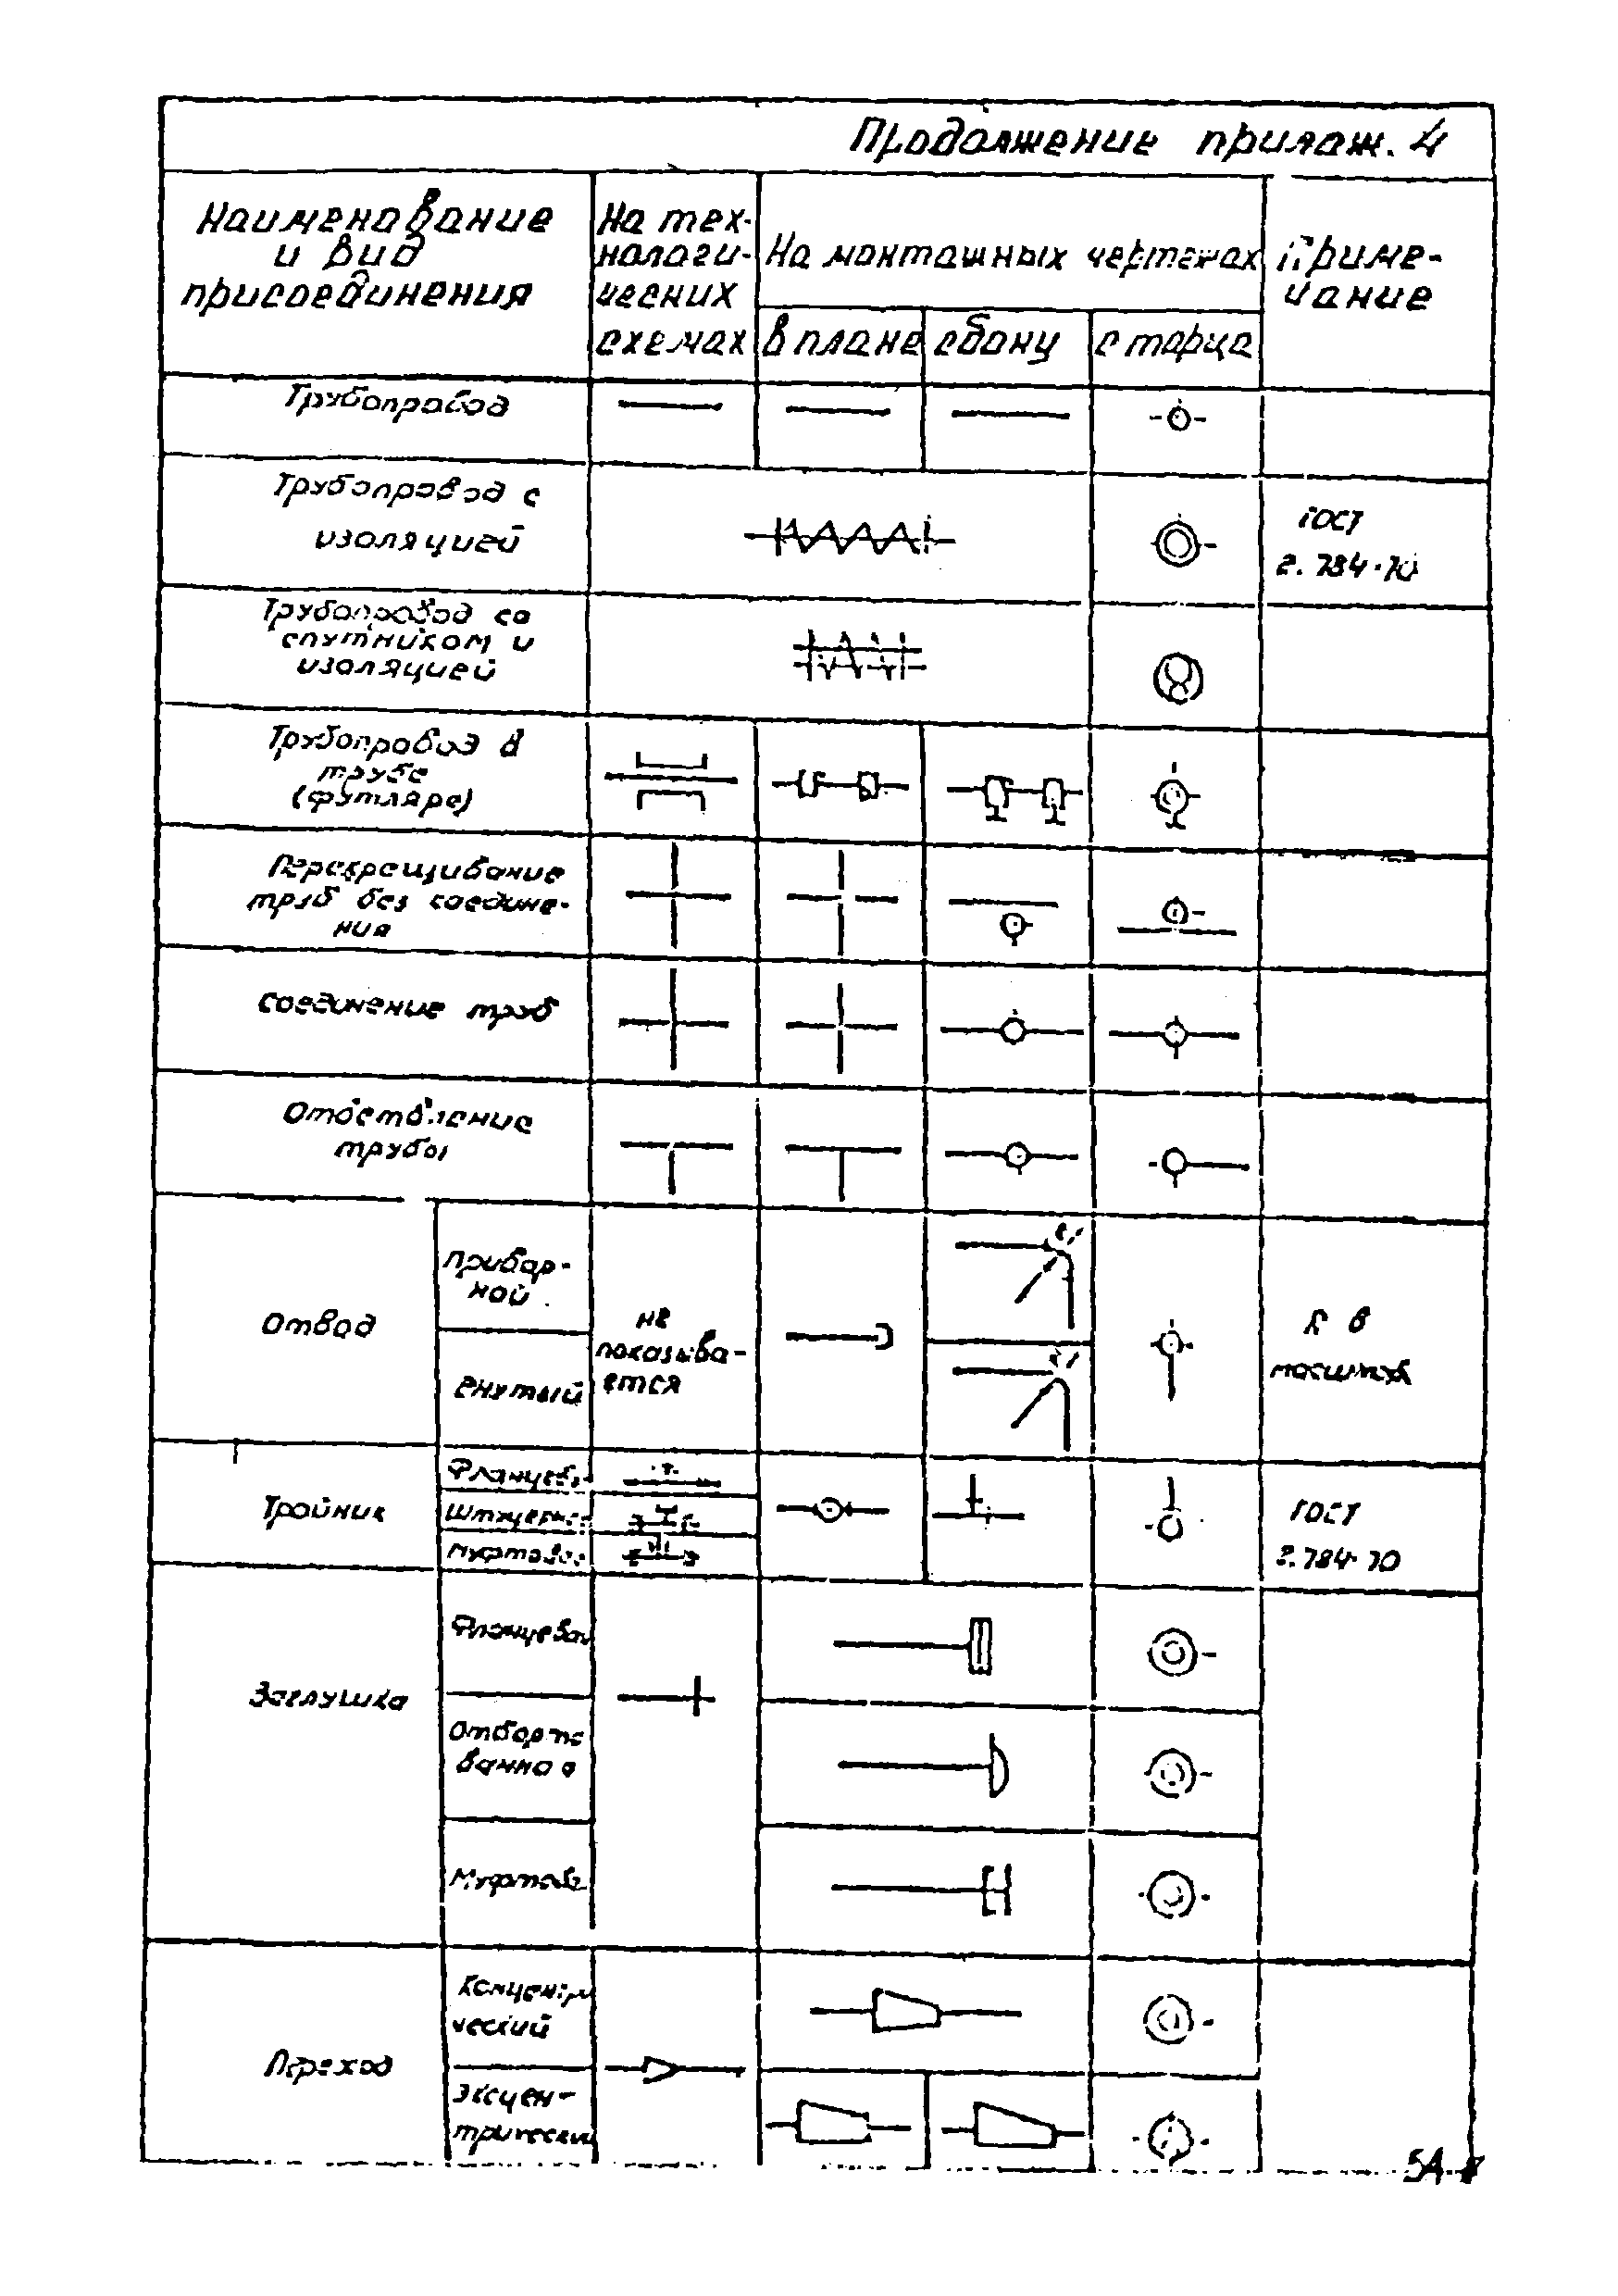 Продолжение прилож. 4
Наименование
и вид
присоединения
На тех-
нологи-
ческих
схемах
На монтажных чертежах
в плане
сбоку
с торца
Приме-
чание
Трубопровод
Трубопровод с
изоляцией
ГОСТ
2.784-70
Трубопровод со
спутником и
изоляцией
Трубопровод в
трубе
(футляре)
Перекрещивание
труб без соедине-
ния
Соединение труб
Ответвление
трубы
Отвод
Привар-
ной
Гнутый
не
показыва-
ется
R в
масштаб
Тройник
Фланцево
Штуцерно
Муфтовое
ГОСТ
2.784-70
Заглушка
Фланцевая
Отборто
ванно
Муфтова
Переход
Концентри
ческий
Эксцен-
трический